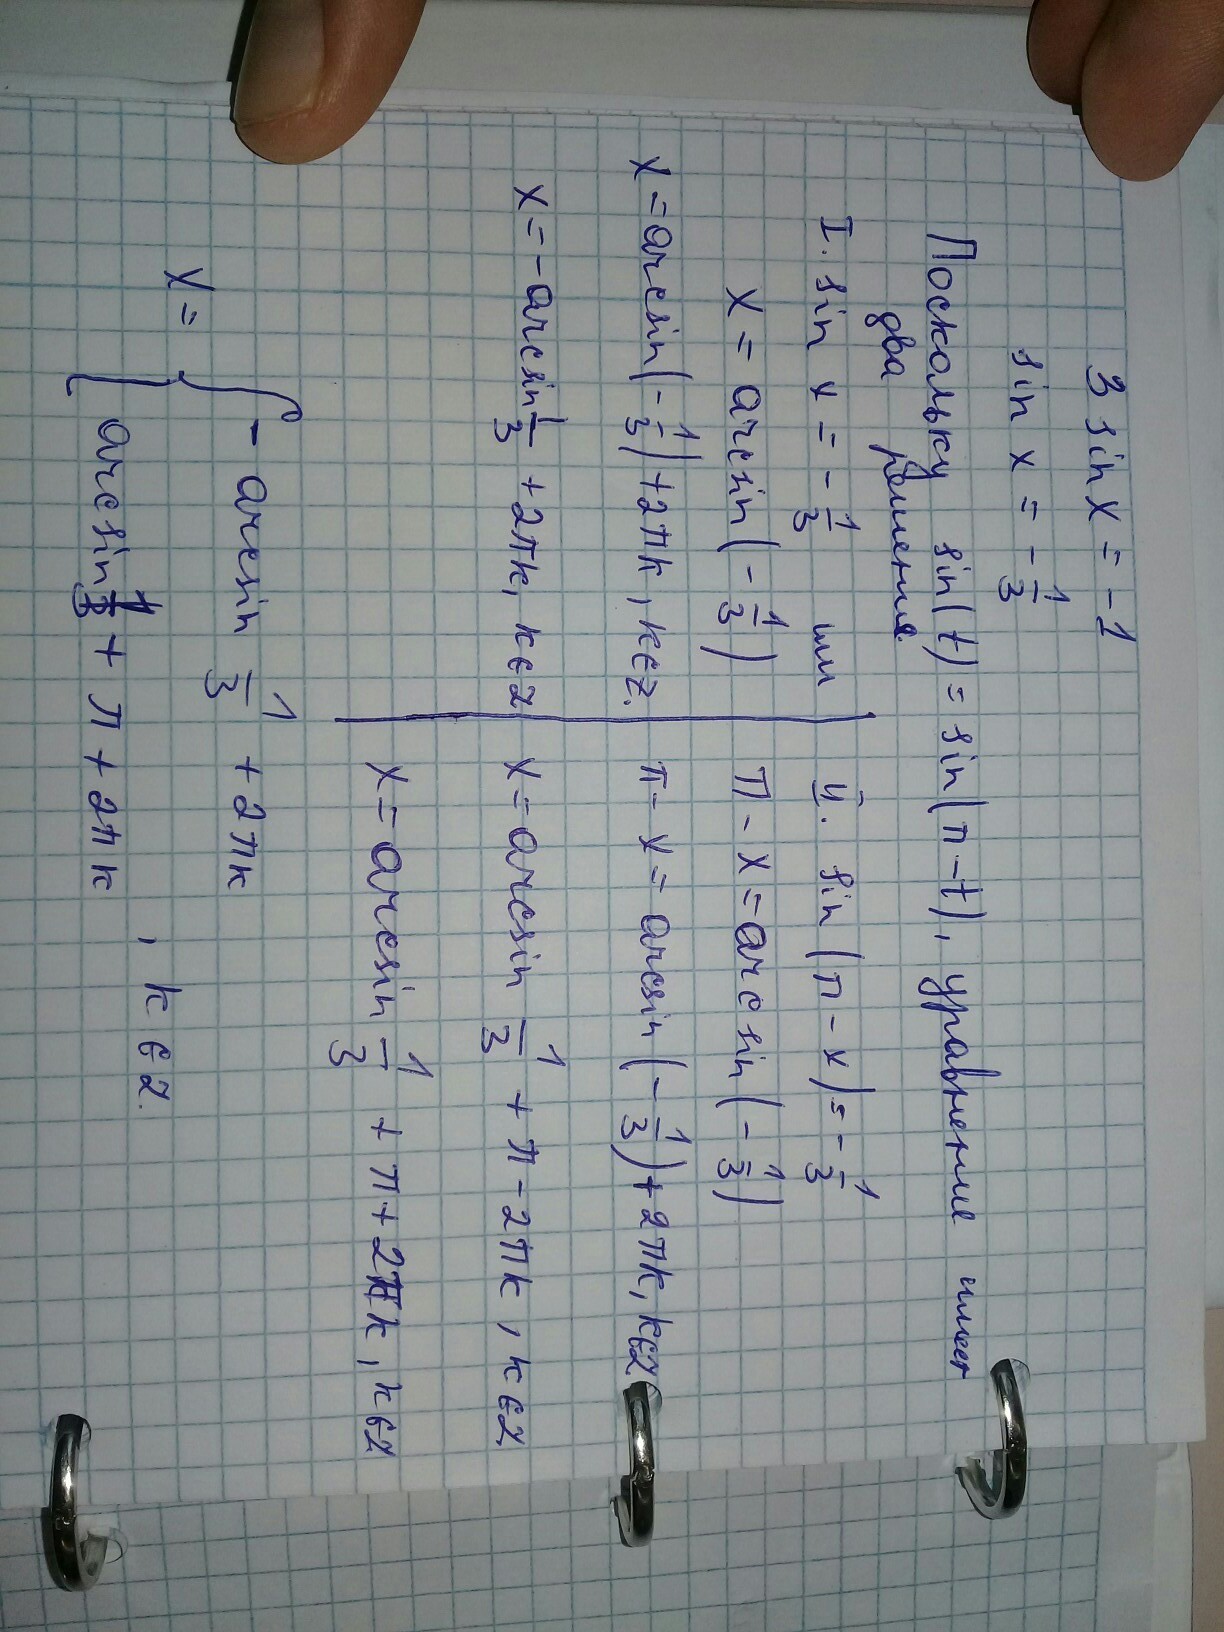 3 sin x = -1
sin x = - 1/3
Поскольку sin(t) = sin(π-t), уравнение имеет
два решения
I. sin x = - 1/3 или II. sin(π-x) = - 1/3
x = arcsin(- 1/3) π - x = arcsin(- 1/3)
x = arcsin(- 1/3) + 2πk, k∈Z. π - x = arcsin(- 1/3) + 2πk, k∈Z
x = -arcsin 1/3 + 2πk, k∈Z x = arcsin 1/3 + π - 2πk, k∈Z
x = arcsin 1/3 + π + 2πk, k∈Z
x = { - arcsin 1/3 + 2πk
arcsin 1/3 + π + 2πk , k∈Z.